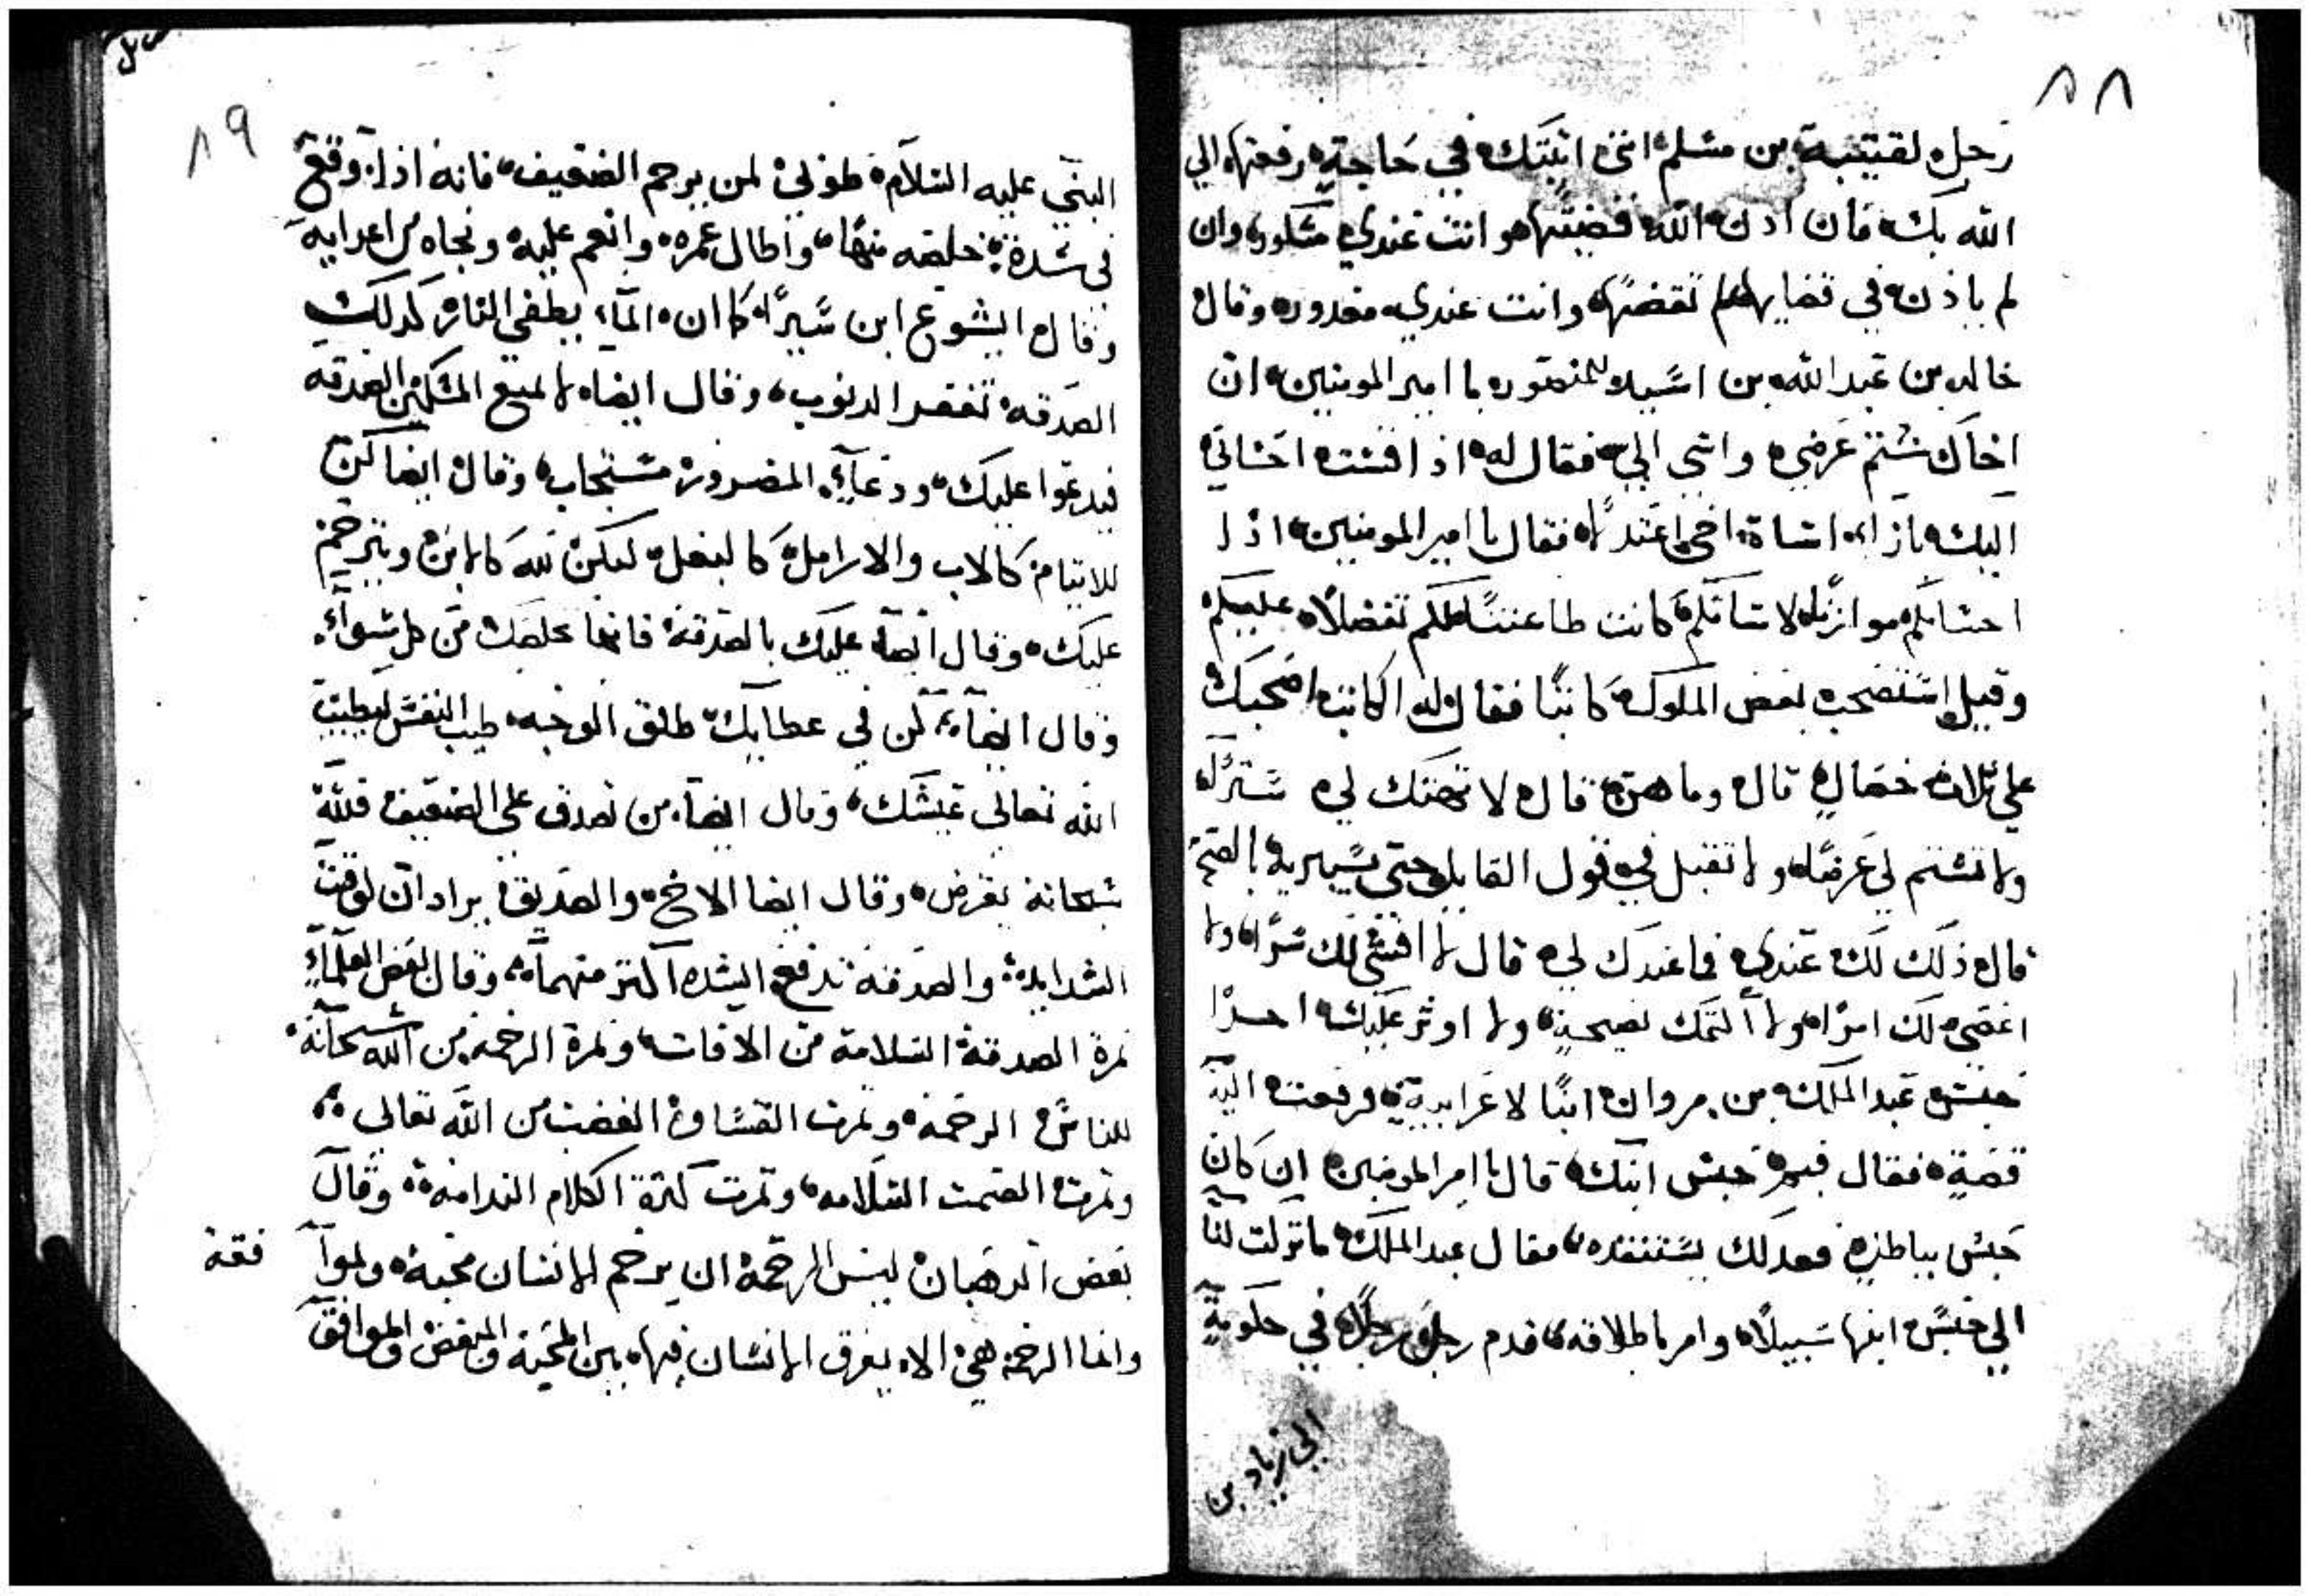 ٨٨
رجل لقتيبة بن مسلم اني اتيتك في حاجة رفعتها الي
الله بك فان اذن الله قضيتها وانت عندي مشكور وان
لم ياذن في قضايها لم تقضها وانت عندي معذور وقال
خالد بن عبد الله بن اسيد للمنصور يا امير المومنين ان
اخاك شتم عرضي واسي الي فقال له اذا قست احساني
اليك بازاء اساة اخي اعتدلا فقال يا امير المومنين اذا
احسانكم موازنا لاساتكم كانت طاعتنا لكم تفضلا عليكم
وقيل استصحب بعض الملوك كاتبا فقال له الكاتب اصحبك
علي ثلاث خصال قال وما هن قال لا تهتك لي سترا
ولا تشتم لي عرضا ولا تقبل في قول القايل حتي
قال ذلك لك عندي فما عندك لي قال لا افشي لك سرا ولا
اعصي لك امرا ولا التمك نصيحة ولا اوثر عليك احدا
حبس عبد الملك بن مروان ابنا لاعرابية فرفعت اليه
قصة فقال فيم حبس ابنك قال يا امير المومنين ان كان
حبس بباطل فعدلك يستنقذه فقال عبد الملك ما تركت لنا
الي حبس ابنها سبيلا وامر باطلاقه قدم رجل رجلا في حكومة
الي زياد بن
٨٩
النبي عليه السلام طوبي لمن يرحم الضعيف فانه اذا وقع
في شدة خلصه منها واطال عمره وانعم عليه ونجاه من اعدايه
وقال ايشوع ابن سيرا كما ان الماء يطفي النار كدلك
الصدقة تغفر الدنوب وقال ايضا لا تمنع المسكين الصدقه
فيدعوا عليك ودعاء المضرور مستجاب وقال ايضا كن
للايتام كالاب والارامل كالبعل ليكن لله كالابن ويترحم
عليك وقال ايضا عليك بالصدقة فانها تخلصك من كل سوء
وقال ايضا كن في عطايك طلق الوجه طيب النفس ليطيب
الله تعالي عيشك وقال ايضا من تصدق علي الضعيف فلله
سبحانه يقرض وقال ايضا الاخ والصديق يرادان لوقت
الشدايد والصدقة تدفع الشده اكتر منهما وقال بعض العلماء
تمرة الصدقة السلامة من الافات وتمرة الرحمه من الله سبحانه
للناس الرحمه وتمرت القساوة الغضب من الله تعالي
وتمرت الصمت السلامه وتمرت كترة الكلام الندامة وقال
بعض الرهبان ليس الرحمة ان يرحم الانسان محبه
وانما الرحمه هي الا يفرق الانسان فيها بين المحبه والمبغض والموافق
فقه